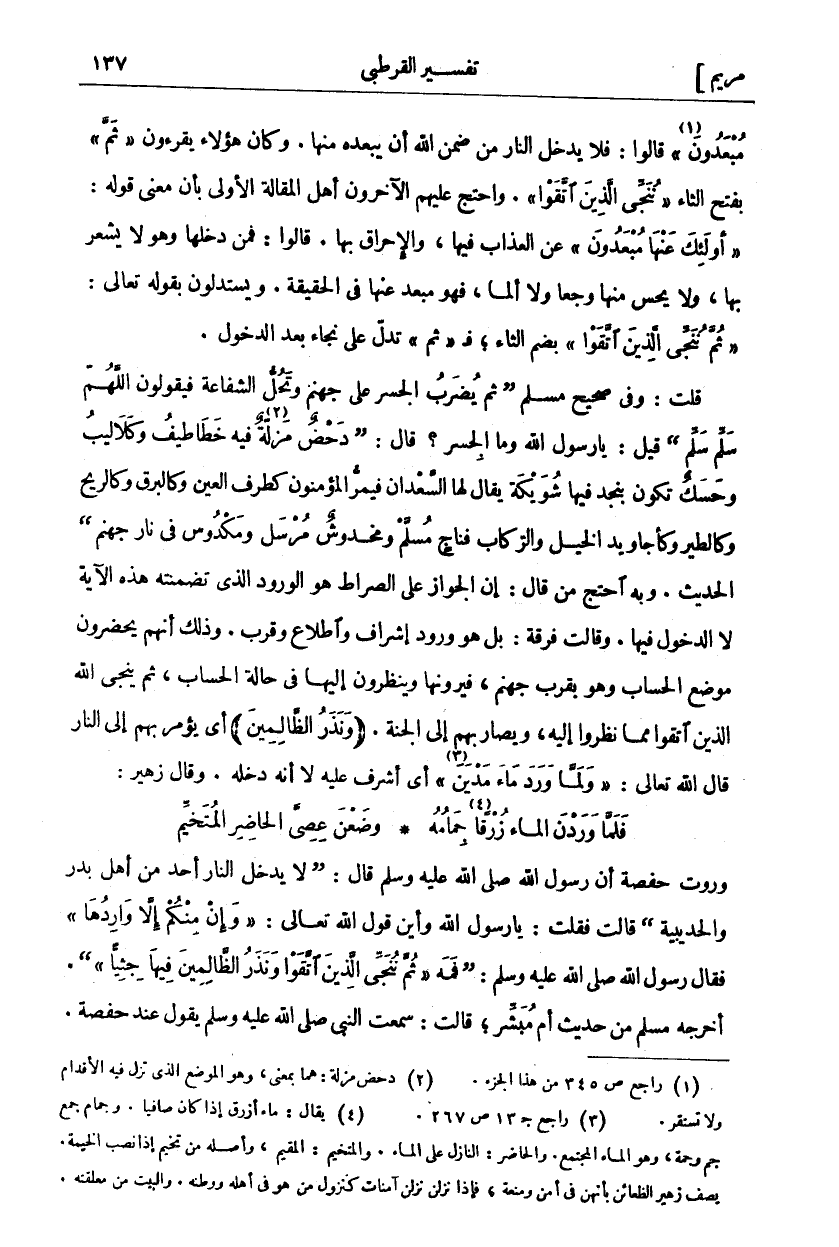 مريم ]
تفسير القرطبي
١٣٧
مُبْعَدُونَ(١) » قالوا : فلا يدخل النار من ضمن الله أن يبعده منها . وكان هؤلاء يقرءون « ثَمَّ »
بفتح الثاء « نُنَجِّى الَّذِينَ ٱتَّقَوْا» . واحتج عليهم الآخرون أهل المقالة الأولى بأن معنى قوله :
« أُولَئِكَ عَنْهَا مُبْعَدُونَ » عن العذاب فيها ، والإحراق بها . قالوا : فمن دخلها وهو لا يشعر
بها ، ولا يحس منها وجعا ولا ألما ، فهو مبعد عنها فى الحقيقة . ويستدلون بقوله تعالى :
« ثُمَّ نُنَجِّى الَّذِينَ ٱتَّقَوْا » بضم الثاء ؛ فـ « ثم » تدلّ على نجاء بعد الدخول .
قلت : وفى صحيح مسلم ” ثم يُضرَبُ الجسر على جهنم وتَحُلُّ الشفاعة فيقولون اللَّهُمَّ
سَلِّم سَلِّم “ قيل : يارسول الله وما الجسر ؟ قال : ” دَحْضٌ مَزِلَّةٌ(٢) فيه خَطَاطِيفُ وكَلَالِيبُ
وحَسَكٌ تكون بنجد فيها شُوَيْكَة يقال لها السَّعْدان فيمرُّ المؤمنون كطرف العين وكالبرق وكالريح
وكالطير وكأجاويد الخيل والرّكاب فناجٍ مُسلَّمٌ ومخدوشٌ مُرْسَل ومَكْدُوس فى نار جهنم “
الحديث . وبه ٱحتج من قال : إن الجواز على الصراط هو الورود الذى تضمنته هذه الآية
لا الدخول فيها . وقالت فرقة : بل هو ورود إشراف وٱطلاع وقرب . وذلك أنهم يحضرون
موضع الحساب وهو بقرب جهنم ، فيرونها وينظرون إليها فى حالة الحساب ، ثم ينجى الله
الذين ٱتقوا مما نظروا إليه ، ويصار بهم إلى الجنة . ﴿وَنَذَرُ الظَّالِمِينَ﴾ أى يؤمر بهم إلى النار
قال الله تعالى : « وَلَمَّا وَرَدَ مَاءَ مَدْيَنَ(٣) » أى أشرف عليه لا أنه دخله . وقال زهير :
فَلَمَّا وَرَدْنَ الماء زُرْقًا(٤) جِمَامُهُ * وضَعْنَ عِصِىَّ الحاضِرِ المُتَخَيِّمِ
وروت حفصة أن رسول الله صلى الله عليه وسلم قال : ” لا يدخل النار أحد من أهل بدر
والحديبية “ قالت فقلت : يارسول الله وأين قول الله تعالى : « وَإِنْ مِنْكُمْ إِلَّا وَارِدُهَا »
فقال رسول الله صلى الله عليه وسلم : ” فمه « ثُمَّ نُنَجِّى الَّذِينَ ٱتَّقَوْا وَنَذَرُ الظَّالِمِينَ فِيهَا جِثِيًّا »“ .
أخرجه مسلم من حديث أم مُبَشِّر ؛ قالت : سمعت النبى صلى الله عليه وسلم يقول عند حفصة .
(١) راجع ص ٣٤٥ من هذا الجزء . (٢) دحض مزلة : هما بمعنى ، وهو الموضع الذى تزل فيه الأقدام
ولا تستقر . (٣) راجع جـ ١٣ ص ٢٦٧ . (٤) يقال : ماء أزرق إذا كان صافيا . وجمام جمع
جم وجمة ، وهو الماء المجتمع . والحاضر : النازل على الماء . والمتخيم : المقيم ، وأصله من تخيم إذا نصب الخيمة .
يصف زهير الظعائن بأنهن فى أمن ومنعة ، فإذا نزلن نزلن آمنات كنزول من هو فى أهله ووطنه . والبيت من معلقته .